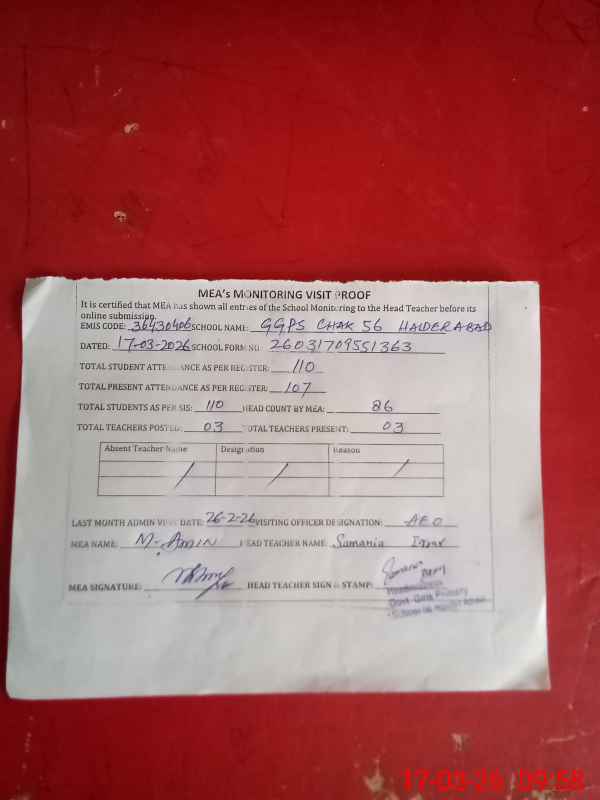 MEA's MONITORING VISIT PROOF
It is certified that MEA has shown all entries of the School Monitoring to the Head Teacher before its
online submission.
EMIS CODE: 36430406 SCHOOL NAME: GGPS CHAK 56 HAIDERABAD
DATED: 17-03-2026 SCHOOL FORM NO: 26031709551363
TOTAL STUDENT ATTENDANCE AS PER REGISTER: 110
TOTAL PRESENT ATTENDANCE AS PER REGISTER: 107
TOTAL STUDENTS AS PER SIS: 110 HEAD COUNT BY MEA: 86
TOTAL TEACHERS POSTED: 03 TOTAL TEACHERS PRESENT: 03
Absent Teacher Name Designation Reason
LAST MONTH ADMIN VISIT DATE: 26-2-26 VISITING OFFICER DESIGNATION: AEO
MEA NAME: M. AMIN HEAD TEACHER NAME: Samania
MEA SIGNATURE: HEAD TEACHER SIGN & STAMP: Samania
Headmistress
Govt. Girls Primary
School
17-03-26 09:58